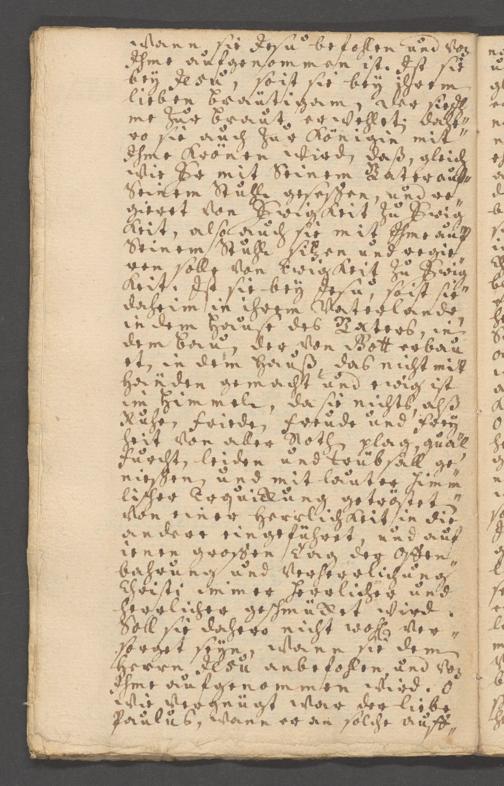 wann sie Jesu befohlen und von
Ihme aufgenommen ist. Ist sie
bey Jesu, so ist sie bey ihrem
lieben Bräutigam, der sie Ih¬
me zur Braut erwehlet, dahe¬
ro sie auch zur Königin mit
Ihme Krönen wird, daß, gleich
wie Er mit Seinem Vater auf
Seinem Stuhl gesessen, und re¬
gieret von Ewigkeit zu Ewig
keit, also auch sie mit Ihme auf
Seinem Stuhl sitzen und regie¬
ren solle von Ewigkeit zu Ewig
keit. Ist sie bey Jesu, so ist sie
daheim in ihrem Vaterlande,
in dem Hause des Vaters, in
dem Bau, der von Gott erbau
et, in dem Hauß, das nicht mit
Händen gemacht und ewig ist
im Himmel, da sie nichts, alß
Ruhe, Friede, Freude und Frey
heit von aller Noth, plag, quaal
furcht, leiden und trübsall ge¬
niessen, und mit lauter Himm
lischer Erquikung getröstet
von einer Herrlichkeit in die
andere eingeführet, und auf
jenen grossen Tag der Offen
bahrung und Verherrlichung
Christi immer herrlicher und
herrlicher geschmüket wird.
Soll sie dahero nicht wohl ver¬
sorget seyn, wann sie dem
Herrn Jesu anbefohlen und von
Ihme aufgenommen wird. O
wie vergnügt war der liebe
Paulus, wann er an solche auff¬